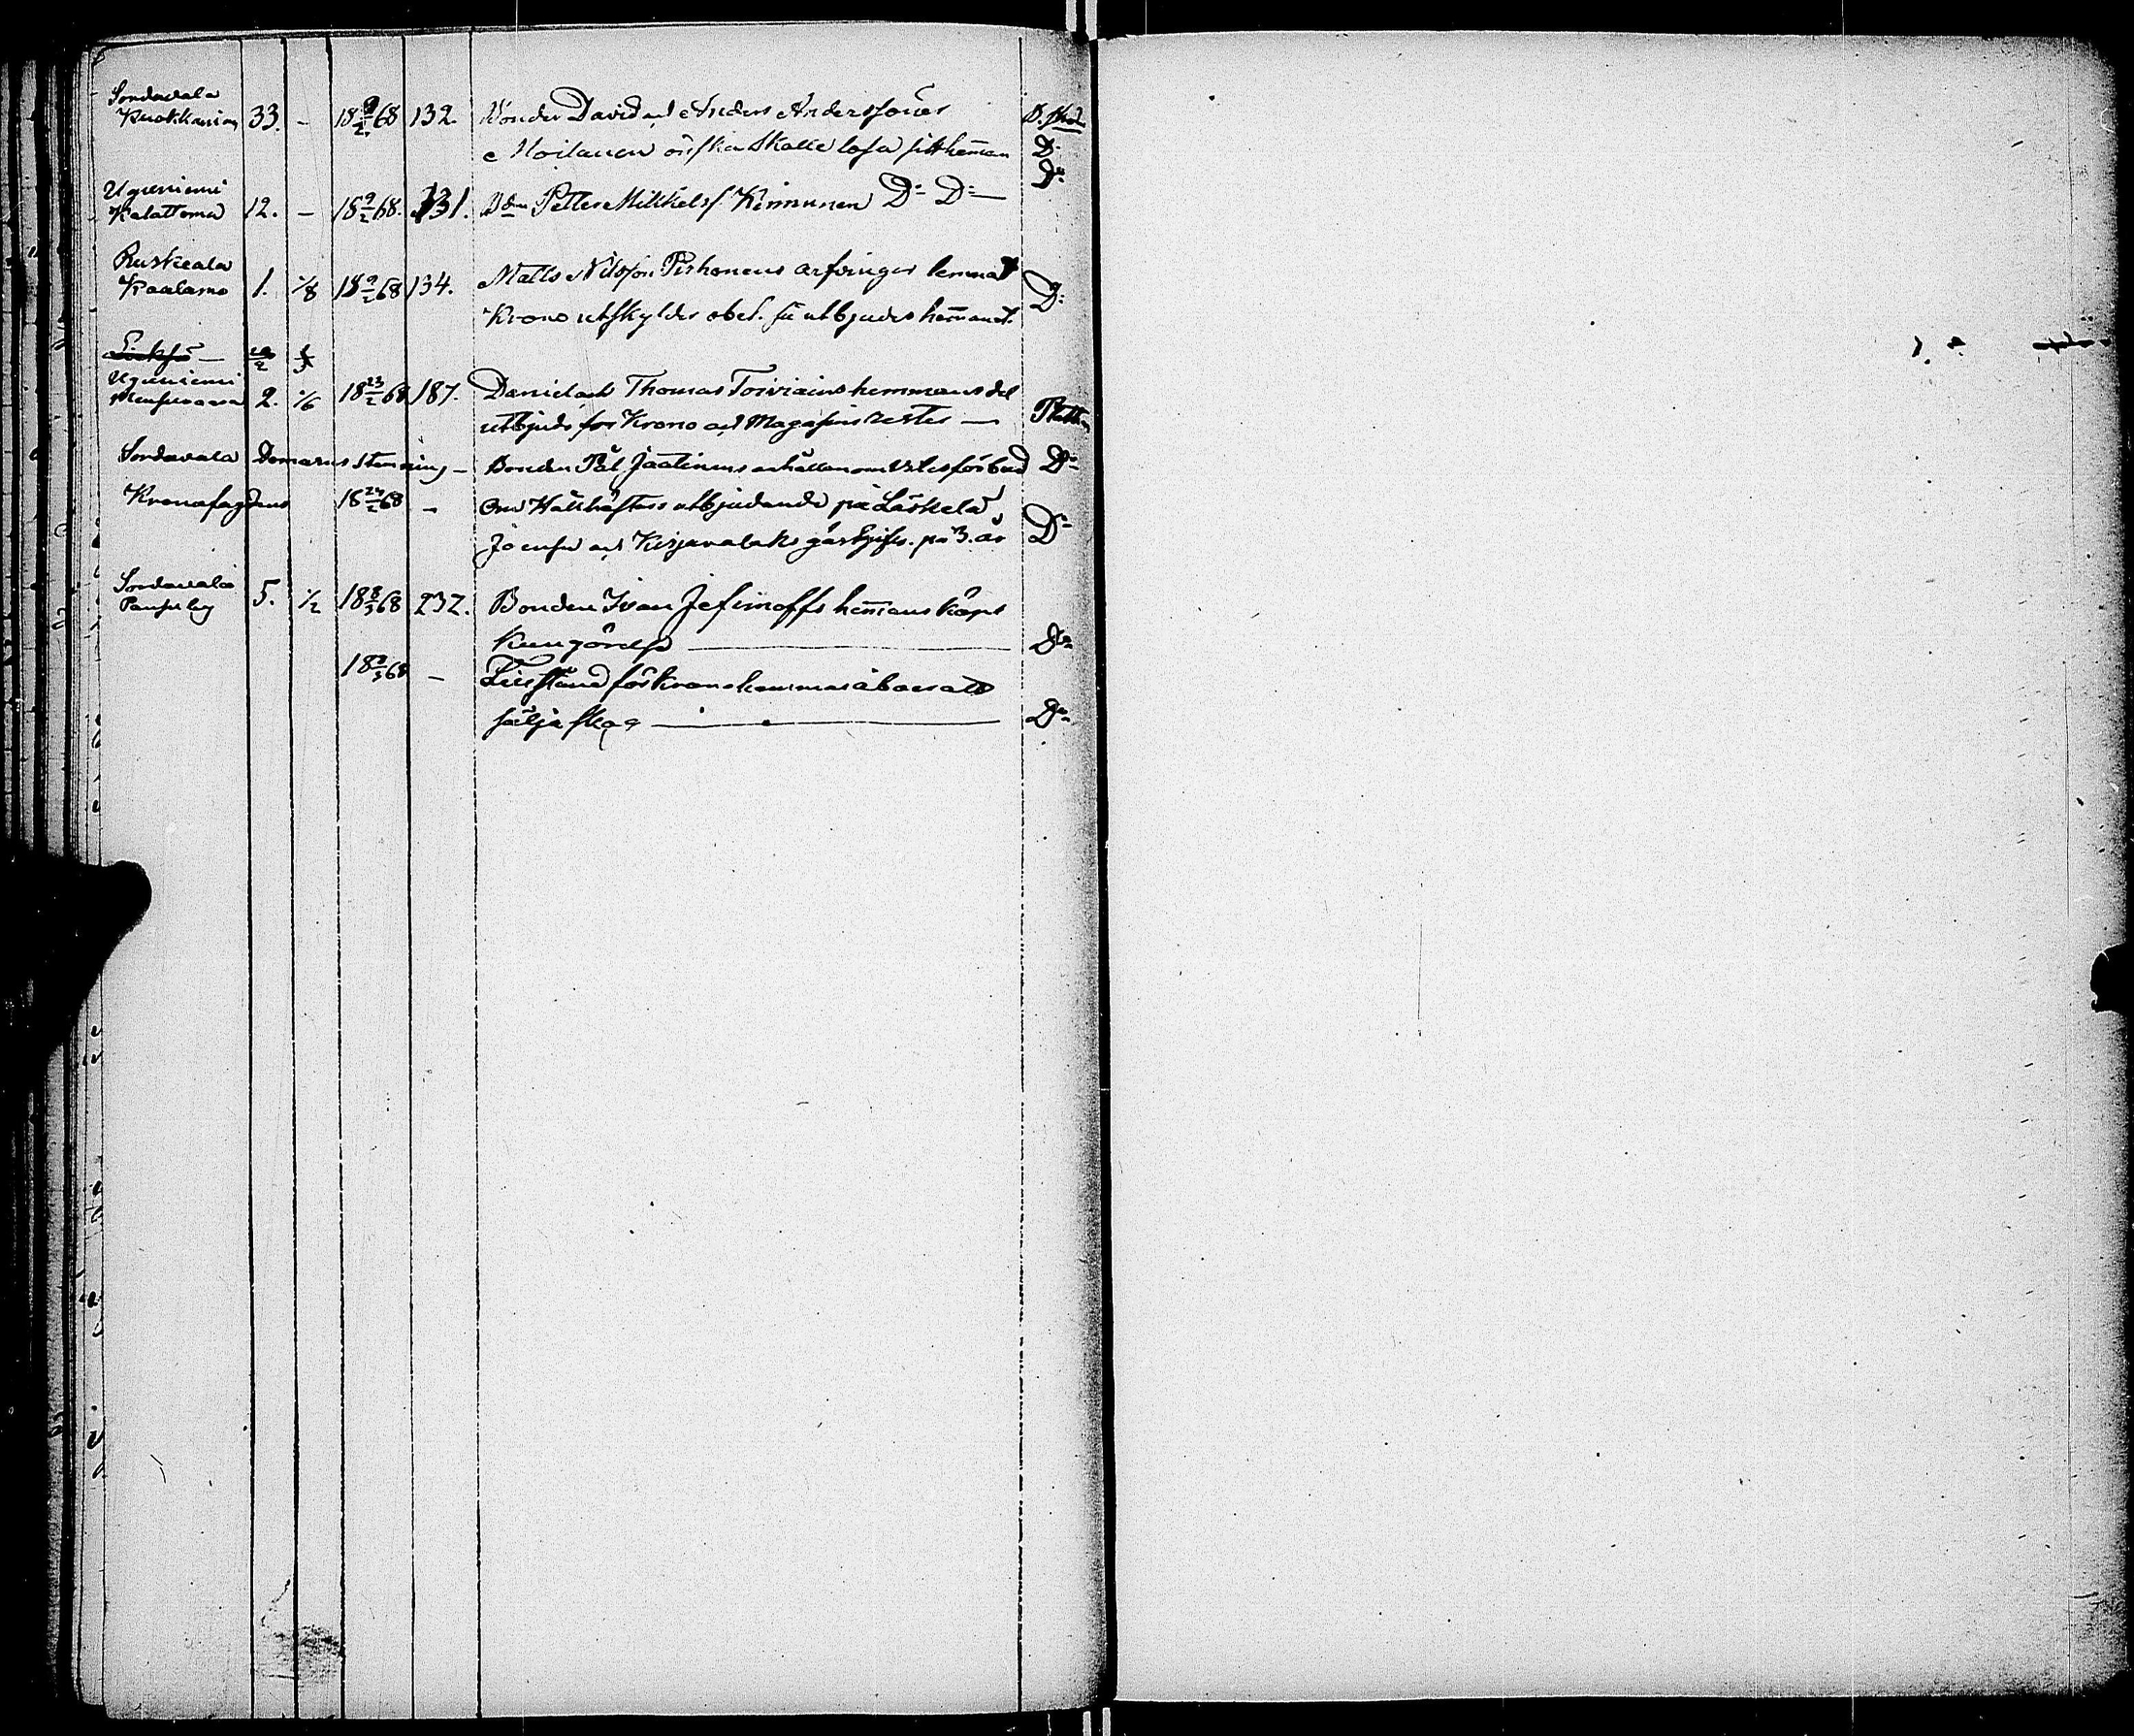 Sordavala
Kuokkaniemi 33. - 18 9/2 68 132. Bönder David och Anders Anderssöner
Moilanen önska skatte lösa sitt hem̄an D:
D:
Uguniemi
Kalattoma 12. - 18 9/2 68. 131. Petter Mikkelss Kinnunen D:o D:o
Ruskeala
Kaalamo 1. 1/8 18 9/2 68 134. Matts Nilsson Pirhonens arfvingar lemnat
Krono utskylder obet. få utbjudes hem̄anet. D:o
Uguniemi
2. 1/6 18 23/2 68 187. Daniel och Thomas Toiviains hemmansdel
utbjuds för Krono och Magasins rester —
Sordavala Domarens stämning - Bonden Pål Jaatinens anhållan om D:o
Kronofogdens 18 24/2 68 - Om Hållhästars utbjudande på Läskelä,
Joensu och Kirjavalaks gästgifv. på 3. år D:o
Sordavala
5. 1/2 18 8/3 68 232. Bonden Ivan Jefimoffs hem̄ans köps
Kungörelse — D:o
18 8/3 68 - Tillstånd för Kronohemmans åboer att
sälja skog — D:o